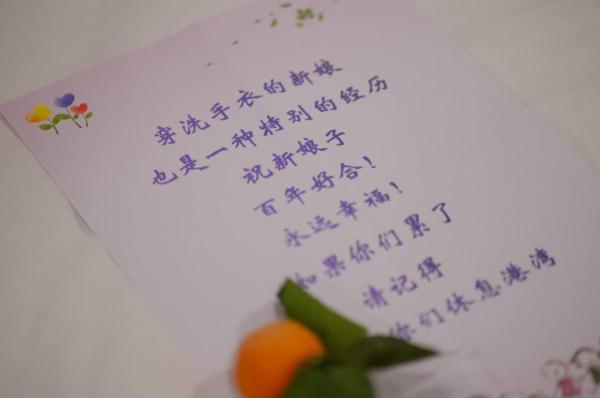 穿洗手衣的新娘
也是一种特别的经历
祝新娘子
百年好合！
永远幸福！
如果你们累了
请记得
你们休息港湾